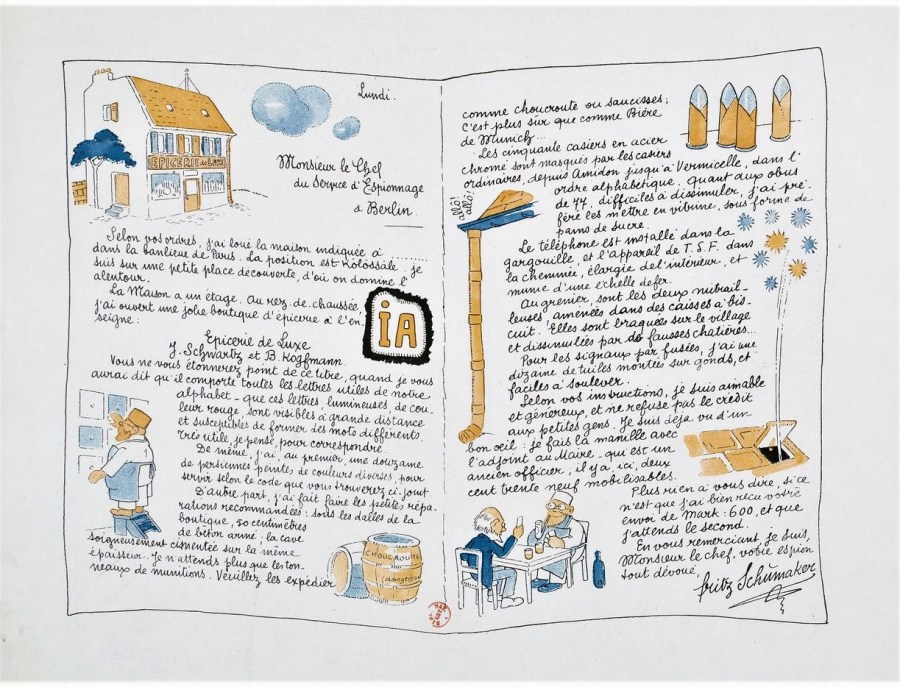 Lundi.
EPICERIE de LUXE
Monsieur le Chef
du Service d'Espionnage
à Berlin.
Selon vos ordres, j'ai loué la maison indiquée à ........
dans la banlieue de Paris. La position est Kolossale : je
suis sur une petite place découverte, d'où on domine l'
alentour.
La Maison a un étage. Au rez-de-chaussée,
j'ai ouvert une jolie boutique d'épicerie à l'en-
seigne :
iA
Epicerie de Luxe
J. Schwartz et B. Koffmann
Vous ne vous étonnerez point de ce titre, quand je vous
aurai dit qu'il comporte toutes les lettres utiles de notre
alphabet - que ces lettres, lumineuses, de cou-
leur rouge, sont visibles à grande distance
et susceptibles de former des mots différents.
Très utile, je pense, pour correspondre.
De même, j'ai, au premier, une douzaine
de persiennes peintes de couleurs diverses, pour
servir selon le code que vous trouverez ci-joint
D'autre part, j'ai fait faire les petites répa-
rations recommandées : sous les dalles de la
boutique, 50 centimètres
de béton armé ; la cave
soigneusement cimentée sur la même
épaisseur. Je n'attends plus que les ton-
neaux de munitions. Veuillez les expédier
CHOUCROUTE
dangereux
comme choucroute ou saucisses ;
c'est plus sûr que comme Bière
de Munich...
Les cinquante casiers en acier
chromé sont masqués par les casiers
ordinaires, depuis Amidon jusqu'à Vermicelle, dans l'
ordre alphabétique. Quant aux obus
de 77, difficiles à dissimuler, j'ai pré-
féré les mettre en vitrine, sous forme de
pains de sucre.
allô!
allô!
Le téléphone est installé dans la
gargouille, et l'appareil de T.S.F. dans
la cheminée, élargie de l'intérieur, et
munie d'une échelle de fer.
Au grenier, sont les deux mitrail-
leuses, amenées dans des caisses à bis-
cuit. Elles sont braquées sur le village
et dissimulées par de fausses chatières...
Pour les signaux par fusées, j'ai une
dizaine de tuiles montées sur gonds, et
faciles à soulever.
Selon vos instructions, je suis aimable
et généreux, et ne refuse pas le crédit
aux petites gens. Je suis déjà vu d'un
bon oeil : je fais la manille avec
l'adjoint au Maire - qui est un
ancien officier ; il y a, ici, deux
cent trente neuf mobilisables.
Plus rien à vous dire, si ce
n'est que j'ai bien reçu votre
envoi de Mark : 600, et que
j'attends le second.
En vous remerciant, je suis,
Monsieur le chef, votre espion
tout dévoué,
fritz Schümaker